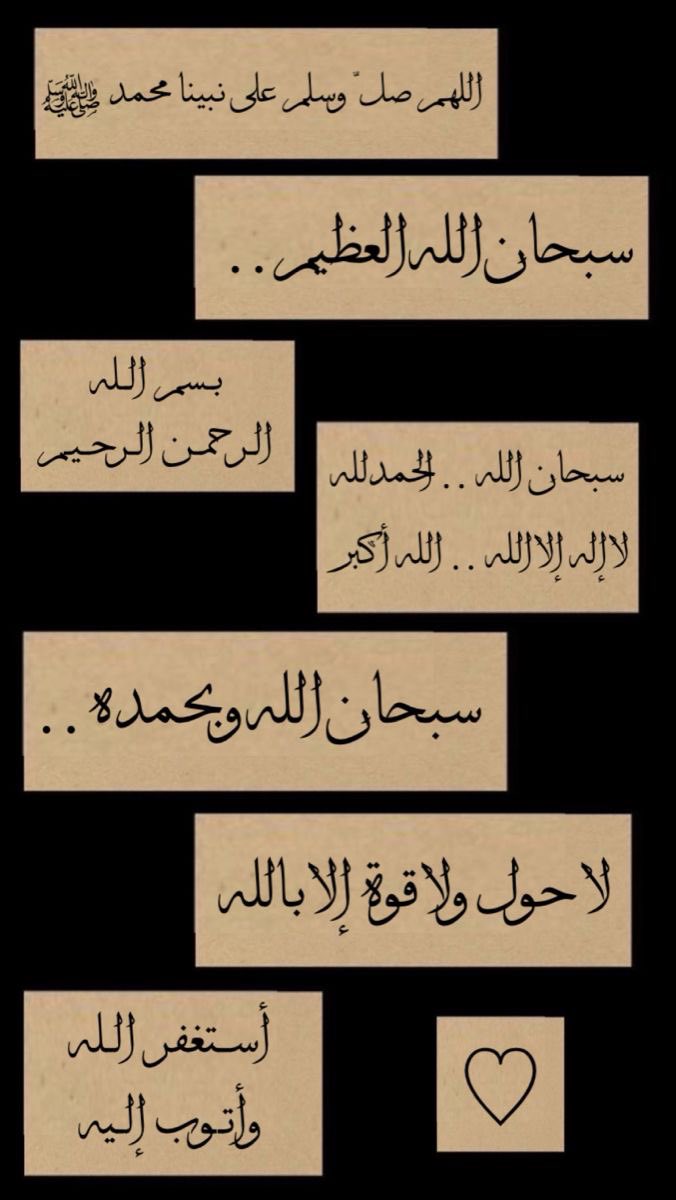 اللهم صل ّ وسلم على نبينا محمد ﷺ
سبحان الله العظيم ..
بسم الله
الرحمن الرحيم
سبحان الله .. الحمدلله
لا إله إلا الله .. الله أكبر
سبحان الله وبحمده ..
لا حول ولا قوة إلا بالله
أستغفر الله
وأتوب إليه